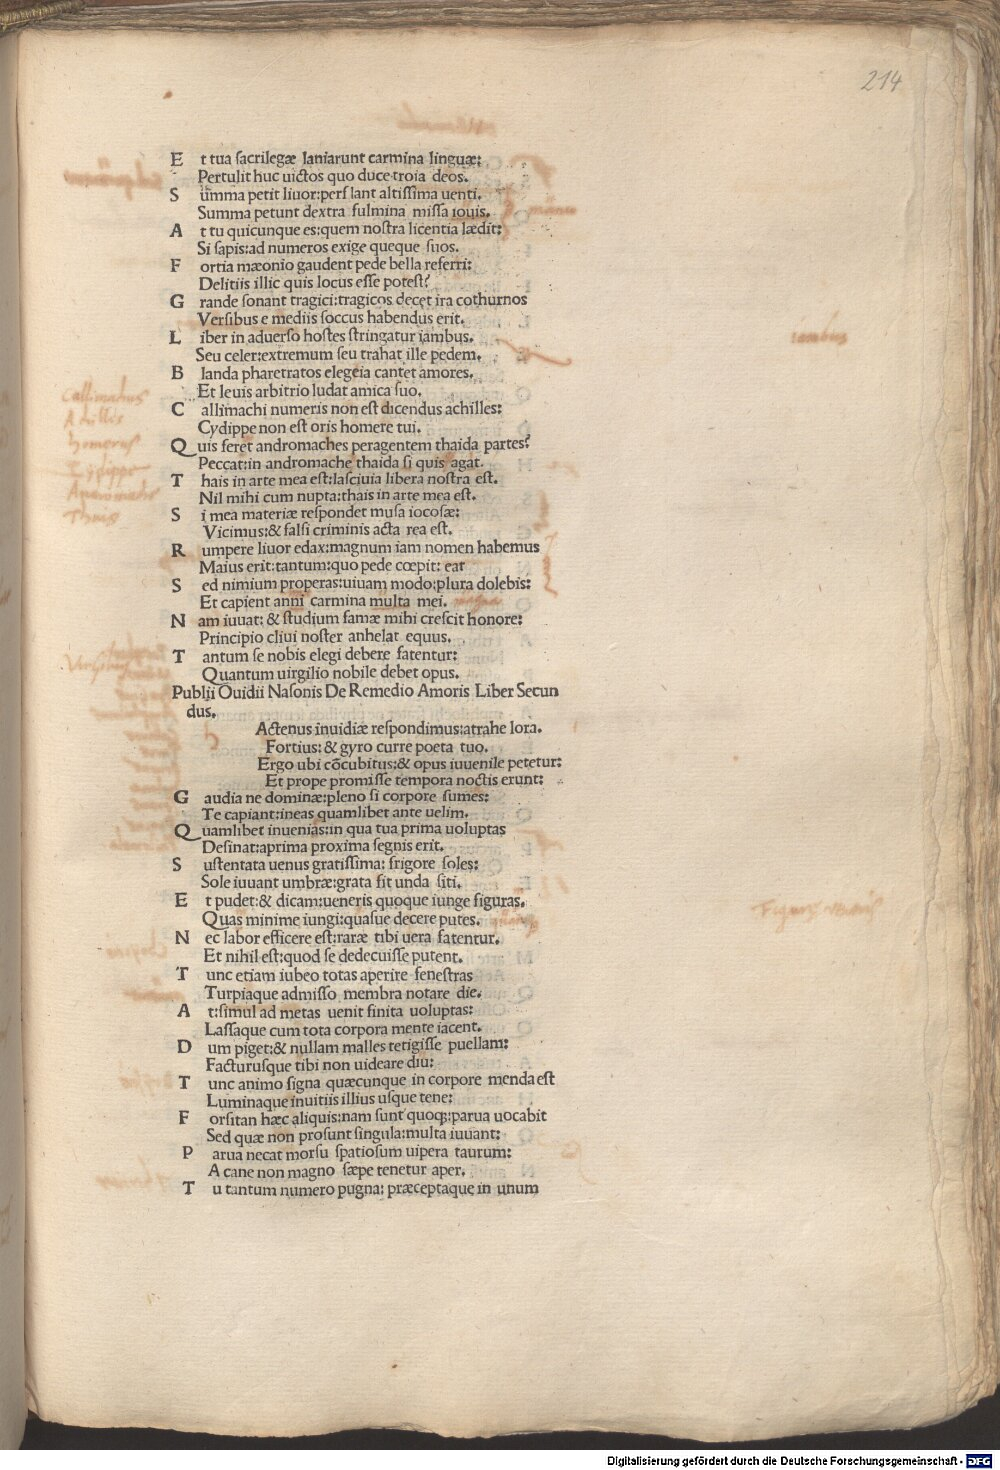 214
E t tua ſacrilegæ laniarunt carmina linguæ:
Pertulit huc uictos quo duce troia deos.
S ūmma petit liuor:perſlant altiſſima uenti.
Summa petunt dextra fulmina miſſa iouis.
A t tu quicunque es:quem noſtra licentia lædit:
Si ſapis:ad numeros exige queque ſuos.
F ortia mæonio gaudent pede bella referri:
Delitiis illic quis locus eſſe poteſt?
G rande ſonant tragici:tragicos decet ira cothurnos
Verſibus e mediis ſoccus habendus erit.
L iber in aduerſo hoſtes ſtringatur iambus.
iambus
Seu celer:extremum ſeu trahat ille pedem.
B landa pharetratos elegeia cantet amores.
Et leuis arbitrio ludat amica ſuo.
Callimachus
Achillis
homerus
Cydippe
Andromache
Thais
C allimachi numeris non eſt dicendus achilles:
Cydippe non eſt oris homere tui.
Q uis feret andromaches peragentem thaida partes?
Peccat:in andromache thaida ſi quis agat.
T hais in arte mea eſt:laſciuia libera noſtra eſt.
Nil mihi cum nupta:thais in arte mea eſt.
S i mea materiæ reſpondet muſa iocoſæ:
Vicimus:& falſi criminis acta rea eſt.
R umpere liuor edax:magnum iam nomen habemus
Maius erit:tantum:quo pede cœpit: eat
S ed nimium properas:uiuam modo:plura dolebis:
Et capient anni carmina multa mei.
N am iuuat: & ſtudium famæ mihi creſcit honore:
Principio cliui noſter anhelat equus.
T antum ſe nobis elegi debere fatentur:
Virgilius
Quantum uirgilio nobile debet opus.
Publii Ouidii Naſonis De Remedio Amoris Liber Secun
dus.
Actenus inuidiæ reſpondimus:atrahe lora.
Fortius: & gyro curre poeta tuo.
Ergo ubi cōcubitus:& opus iuuenile petetur:
Et prope promiſſe tempora noctis erunt:
G audia ne dominæ:pleno ſi corpore ſumes:
Te capiant:ineas quamlibet ante uelim.
Q uamlibet inuenias:in qua tua prima uoluptas
Deſinat:aprima proxima ſegnis erit.
S uſtentata uenus gratiſſima: frigore ſoles:
Sole iuuant umbræ:grata fit unda ſiti.
E t pudet:& dicam:ueneris quoque iunge figuras.
Figure veneris
Quas minime iungi:quaſue decere putes.
N ec labor efficere eſt:raræ tibi uera fatentur.
Et nihil eſt:quod ſe dedecuiſſe putent.
T unc etiam iubeo totas aperire feneſtras
Turpiaque admiſſo membra notare die.
A t:ſimul ad metas uenit finita uoluptas:
Laſſaque cum tota corpora mente iacent.
D um piget:& nullam malles tetigiſſe puellam:
Facturuſque tibi non uideare diu:
T unc animo ſigna quæcunque in corpore menda eſt
Luminaque inuitiis illius uſque tene:
F orſitan hæc aliquis:nam ſunt quoqꝫ:parua uocabit
Sed quæ non proſunt ſingula:multa iuuant:
P arua necat morſu ſpatioſum uipera taurum:
A cane non magno ſæpe tenetur aper.
T u tantum numero pugna: præceptaque in unum
Digitalisierung gefördert durch die Deutsche Forschungsgemeinschaft - DFG